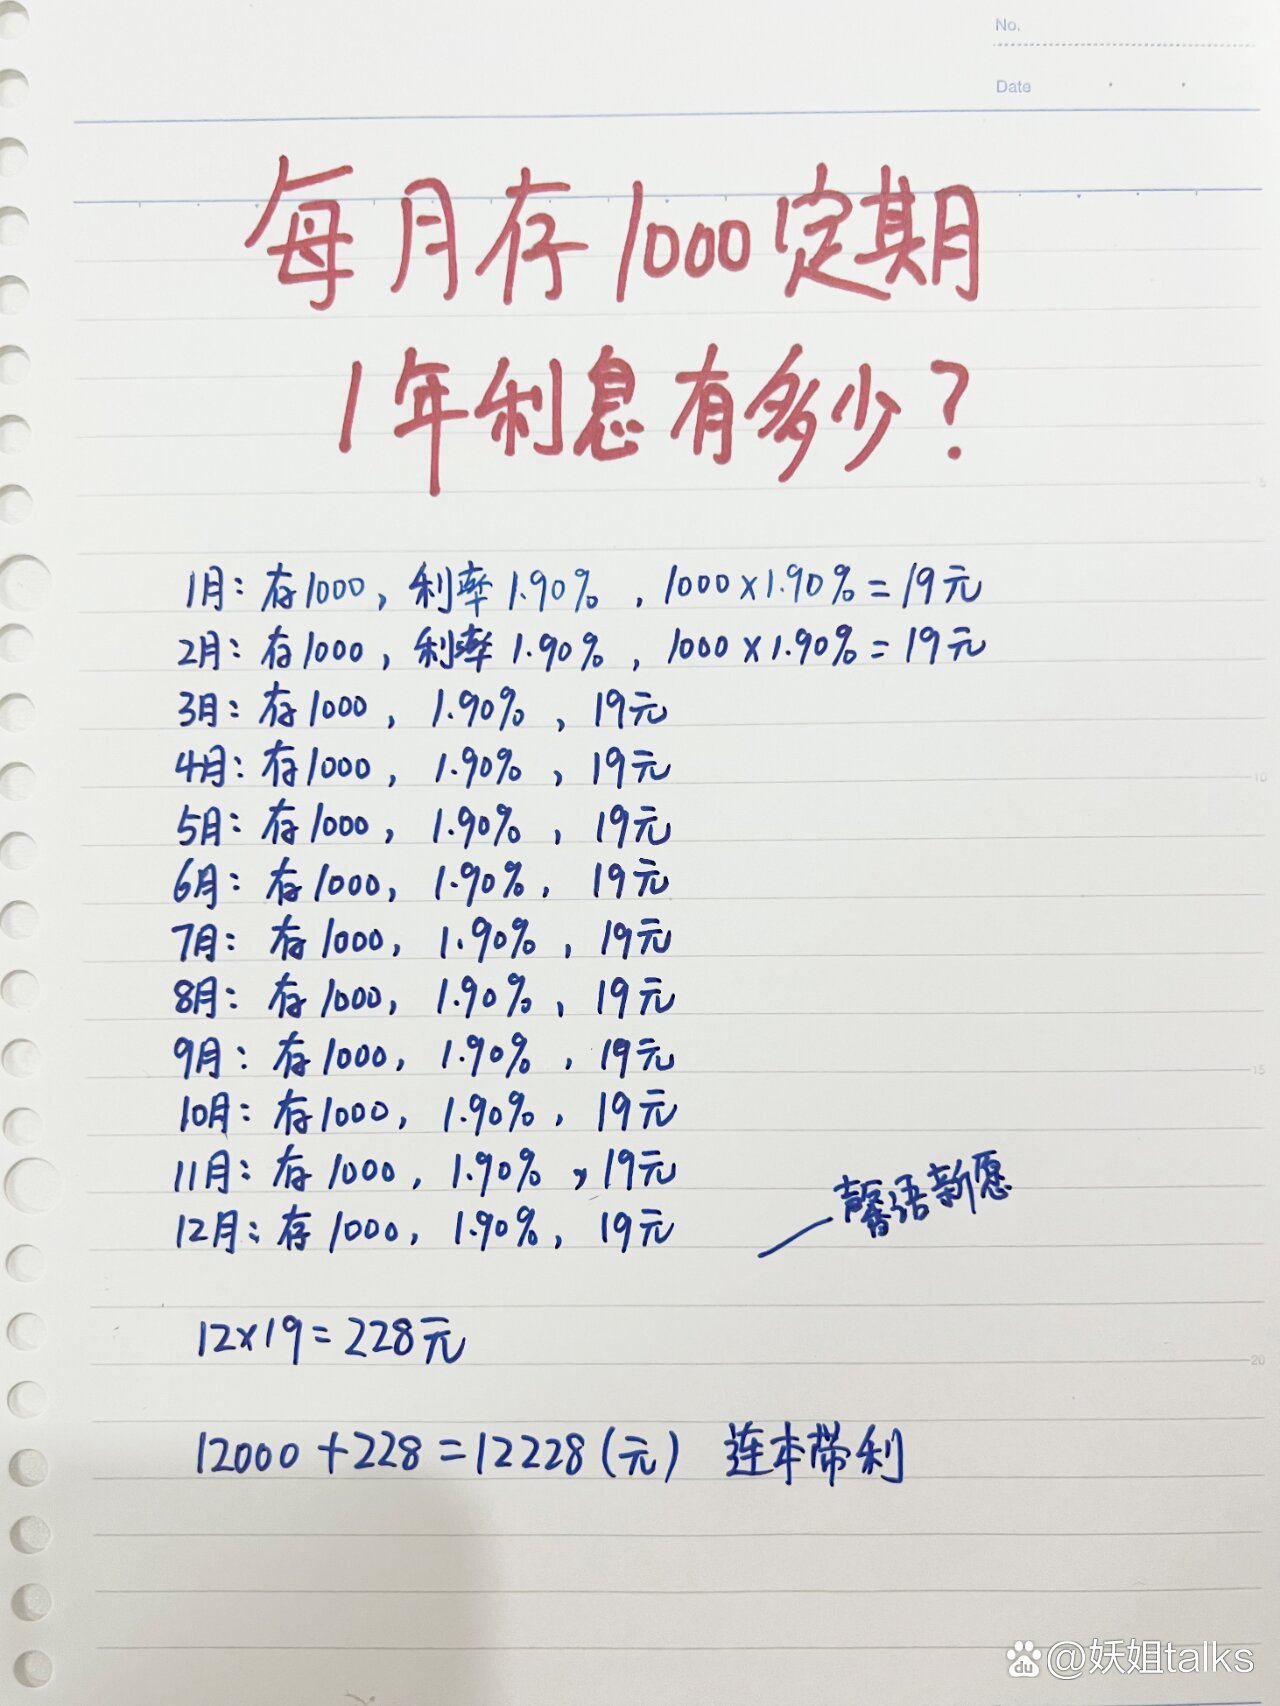 No.
Date
每月存1000定期
1年利息有多少?
1月:存1000,利率1.90%,1000×1.90%=19元
2月:存1000,利率1.90%,1000×1.90%=19元
3月:存1000,1.90%,19元
4月:存1000,1.90%,19元
5月:存1000,1.90%,19元
6月:存1000,1.90%,19元
7月:存1000,1.90%,19元
8月:存1000,1.90%,19元
9月:存1000,1.90%,19元
10月:存1000,1.90%,19元
11月:存1000,1.90%,19元
12月:存1000,1.90%,19元
馨语新愿
12×19=228元
12000+228=12228(元) 连本带利
5
10
15
20
du @妖姐talks